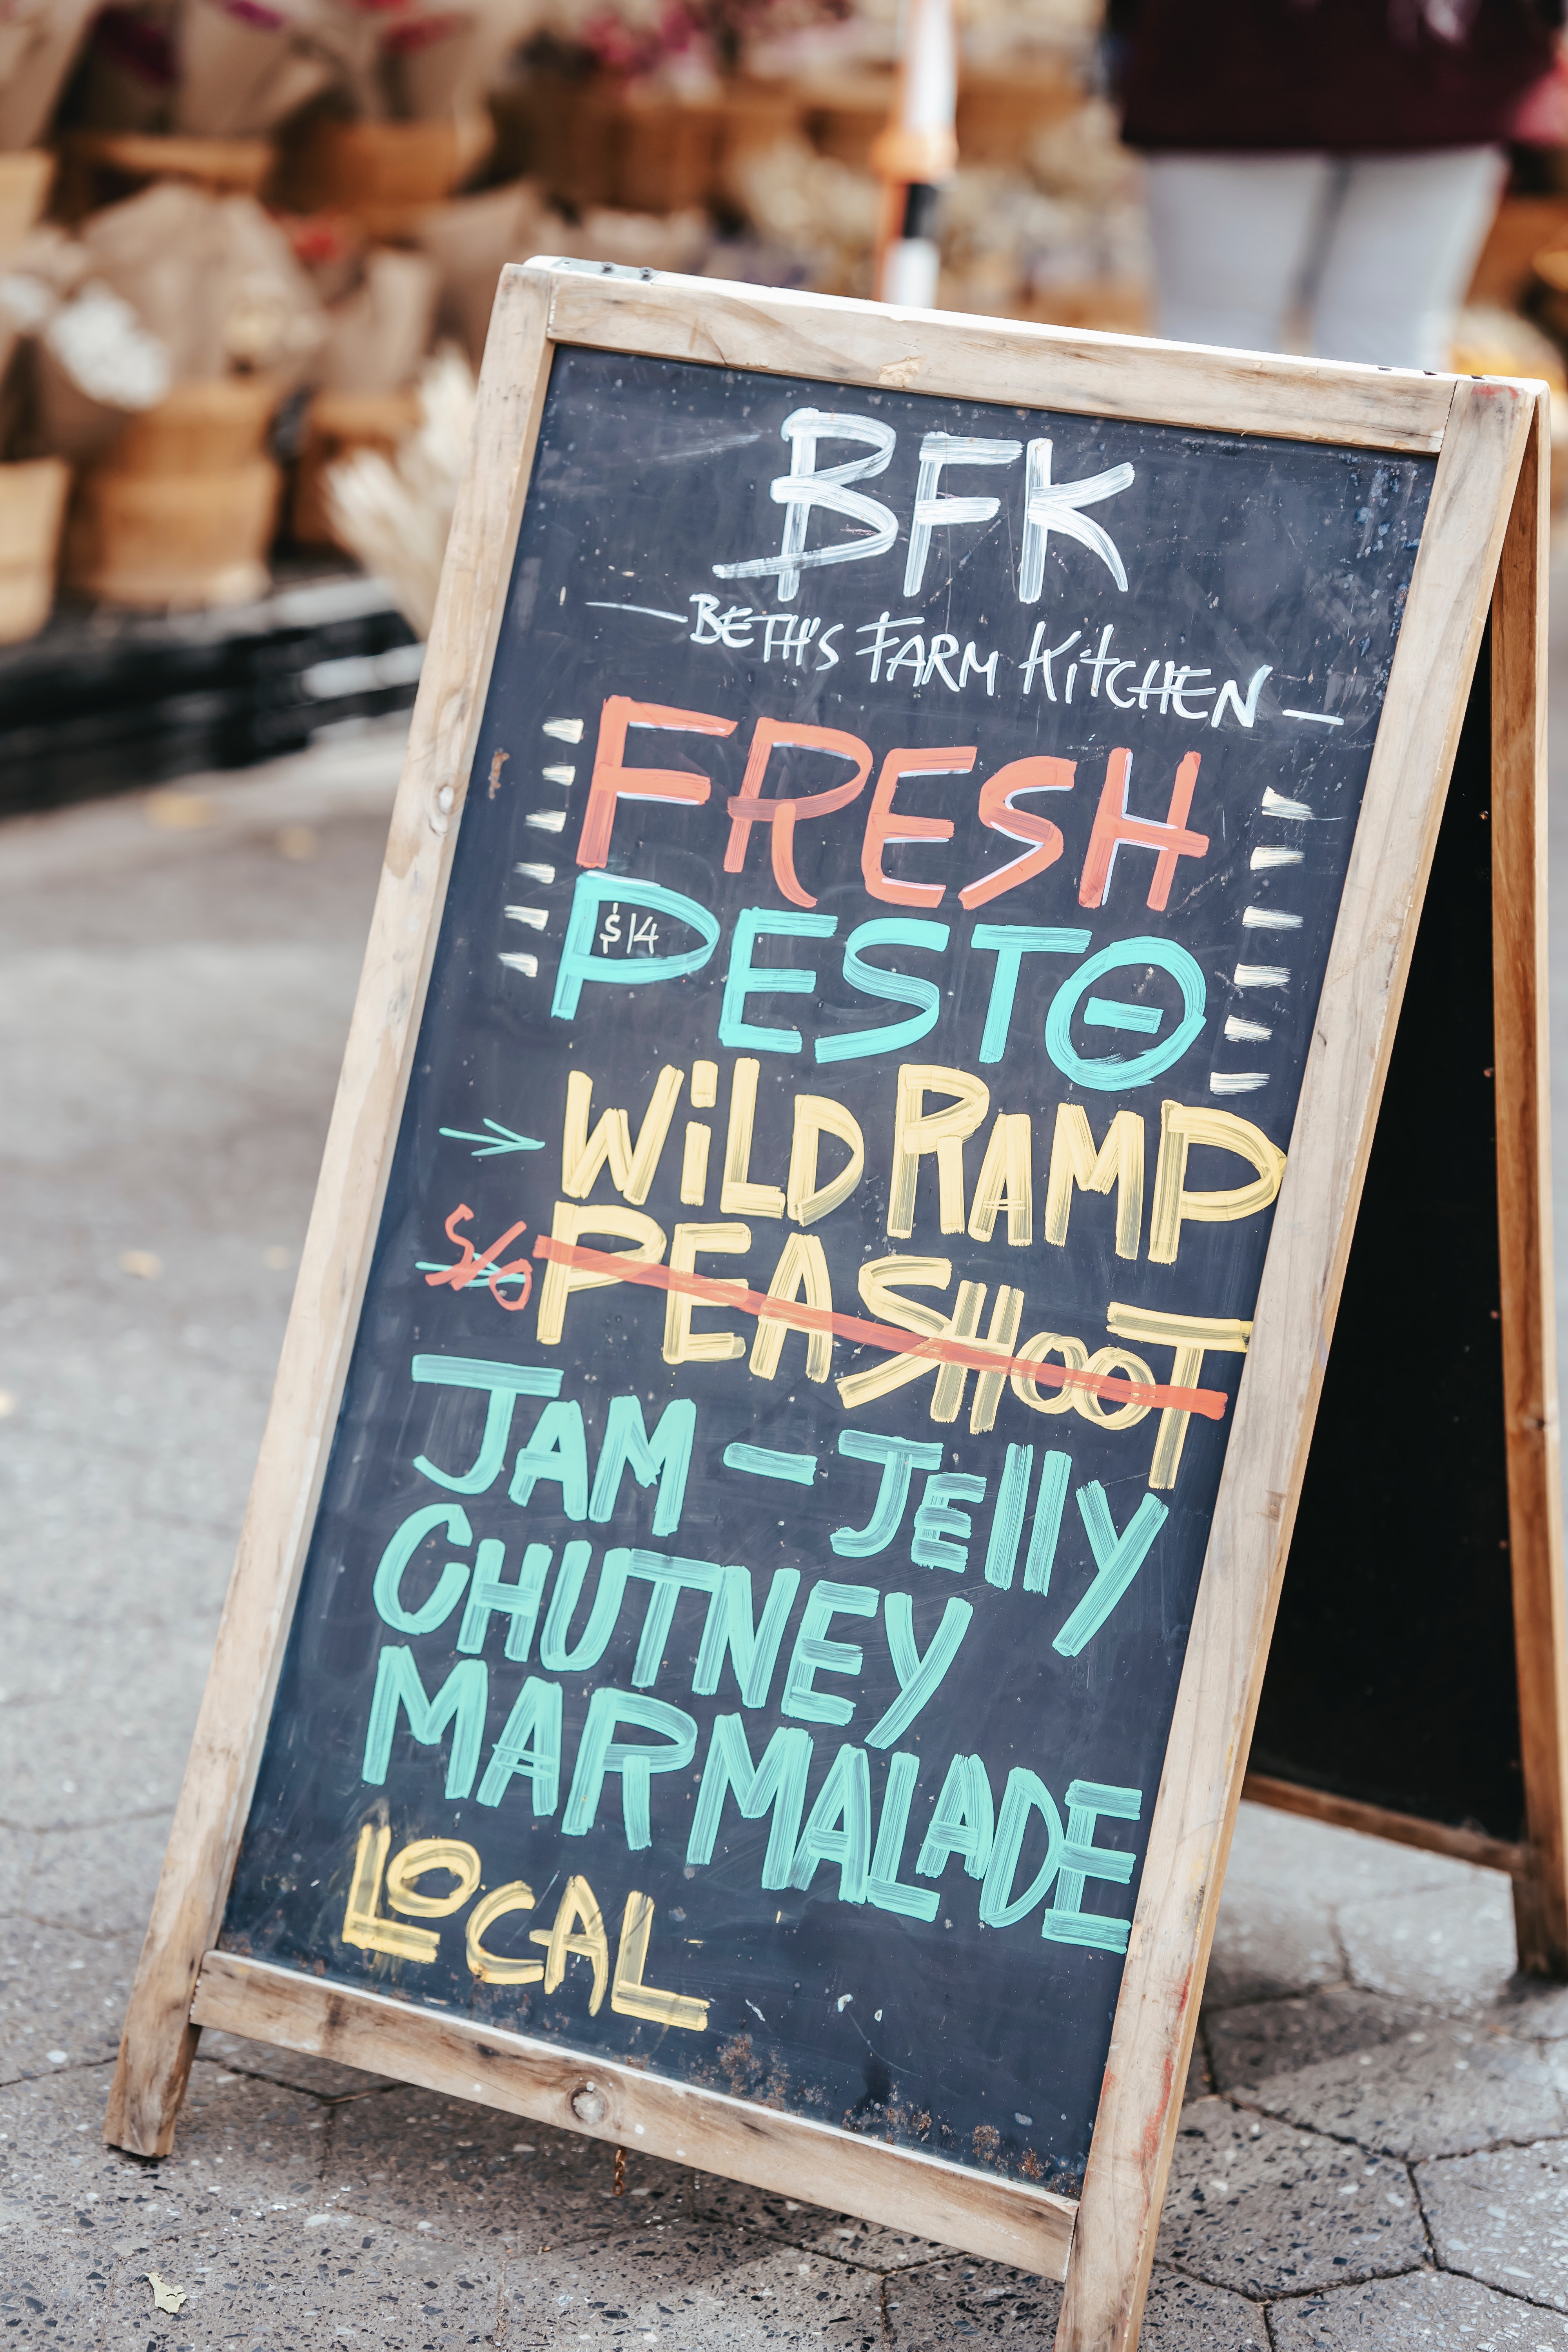 BFK
— BETH'S FARM KiTCHEN —
FRESH
PESTO
$14
→ WiLD RAMP
S/O PEA SHOOT
JAM – JElly
CHUTNEY
MARMALADE
LOCAL